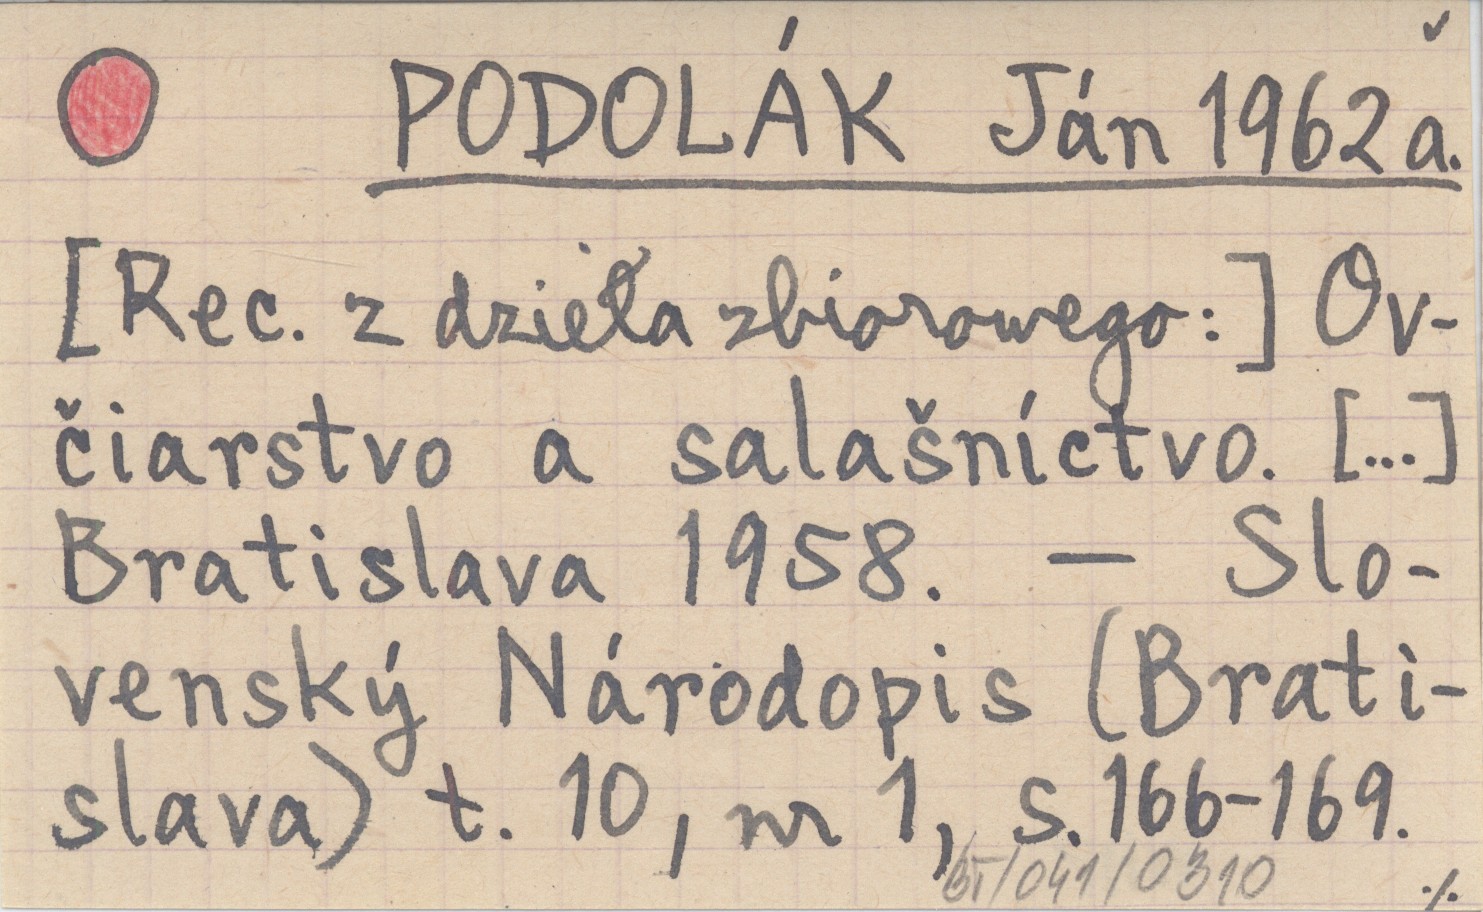 PODOLÁK Ján 1962 a.
[Rec. z dzieła zbiorowego:] Ov-
čiarstvo a salašníctvo. [...]
Bratislava 1958. — Slo-
venský Národopis (Brati-
slava) t. 10, nr 1, s. 166-169.
BT/041/0310
./.